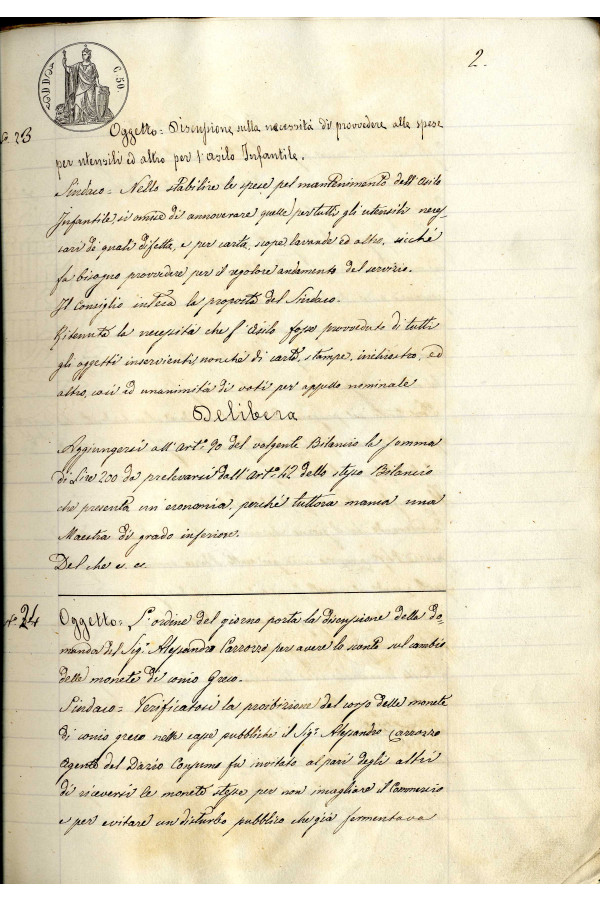 2.
C. 50.
N. 23
Oggetto = Discussione sulla necessità di provvedere alle spese
per utensili ed altro per l'Asilo Infantile.
Sindaco = Nello stabilire le spese pel mantenimento dell'Asilo
Infantile si omise di annoverare quelle per tutti gli utensili neces-
sari de' quali difetta, e per carta, scope, lavande ed altro, sicchè
fa bisogno provvedere per il regolare andamento del servizio.
Il Consiglio intesa la proposta del Sindaco.
Ritenuta la necessità che l'Asilo fosse provveduto di tutti
gli oggetti inservienti, nonchè di carta, stampe, inchiostro, ed
altro, così ad unanimità di voti per appello nominale
Delibera
Aggiungersi all'Art.° 90 del volgente Bilancio la somma
di Lire 200 da prelevarsi dall'Art.° 42 dello stesso Bilancio
che presenta un'economia, perchè tuttora manca una
Maestra di grado inferiore.
Del che
N.° 24
Oggetto = L'ordine del giorno porta la discussione della do-
manda del Sig.r Alessandro Carrozzo per avere lo sconto sul cambio
delle monete di conio Greco.
Sindaco = Verificatosi la proibizione del corso delle monete
di conio greco nelle casse pubbliche il Sig.r Alessandro Carrozzo
Agente del Dazio Consumo fu invitato al pari degli altri
di riceversi le monete stesse per non incagliare il Commercio
e per evitare un disturbo pubblico che già fermentava